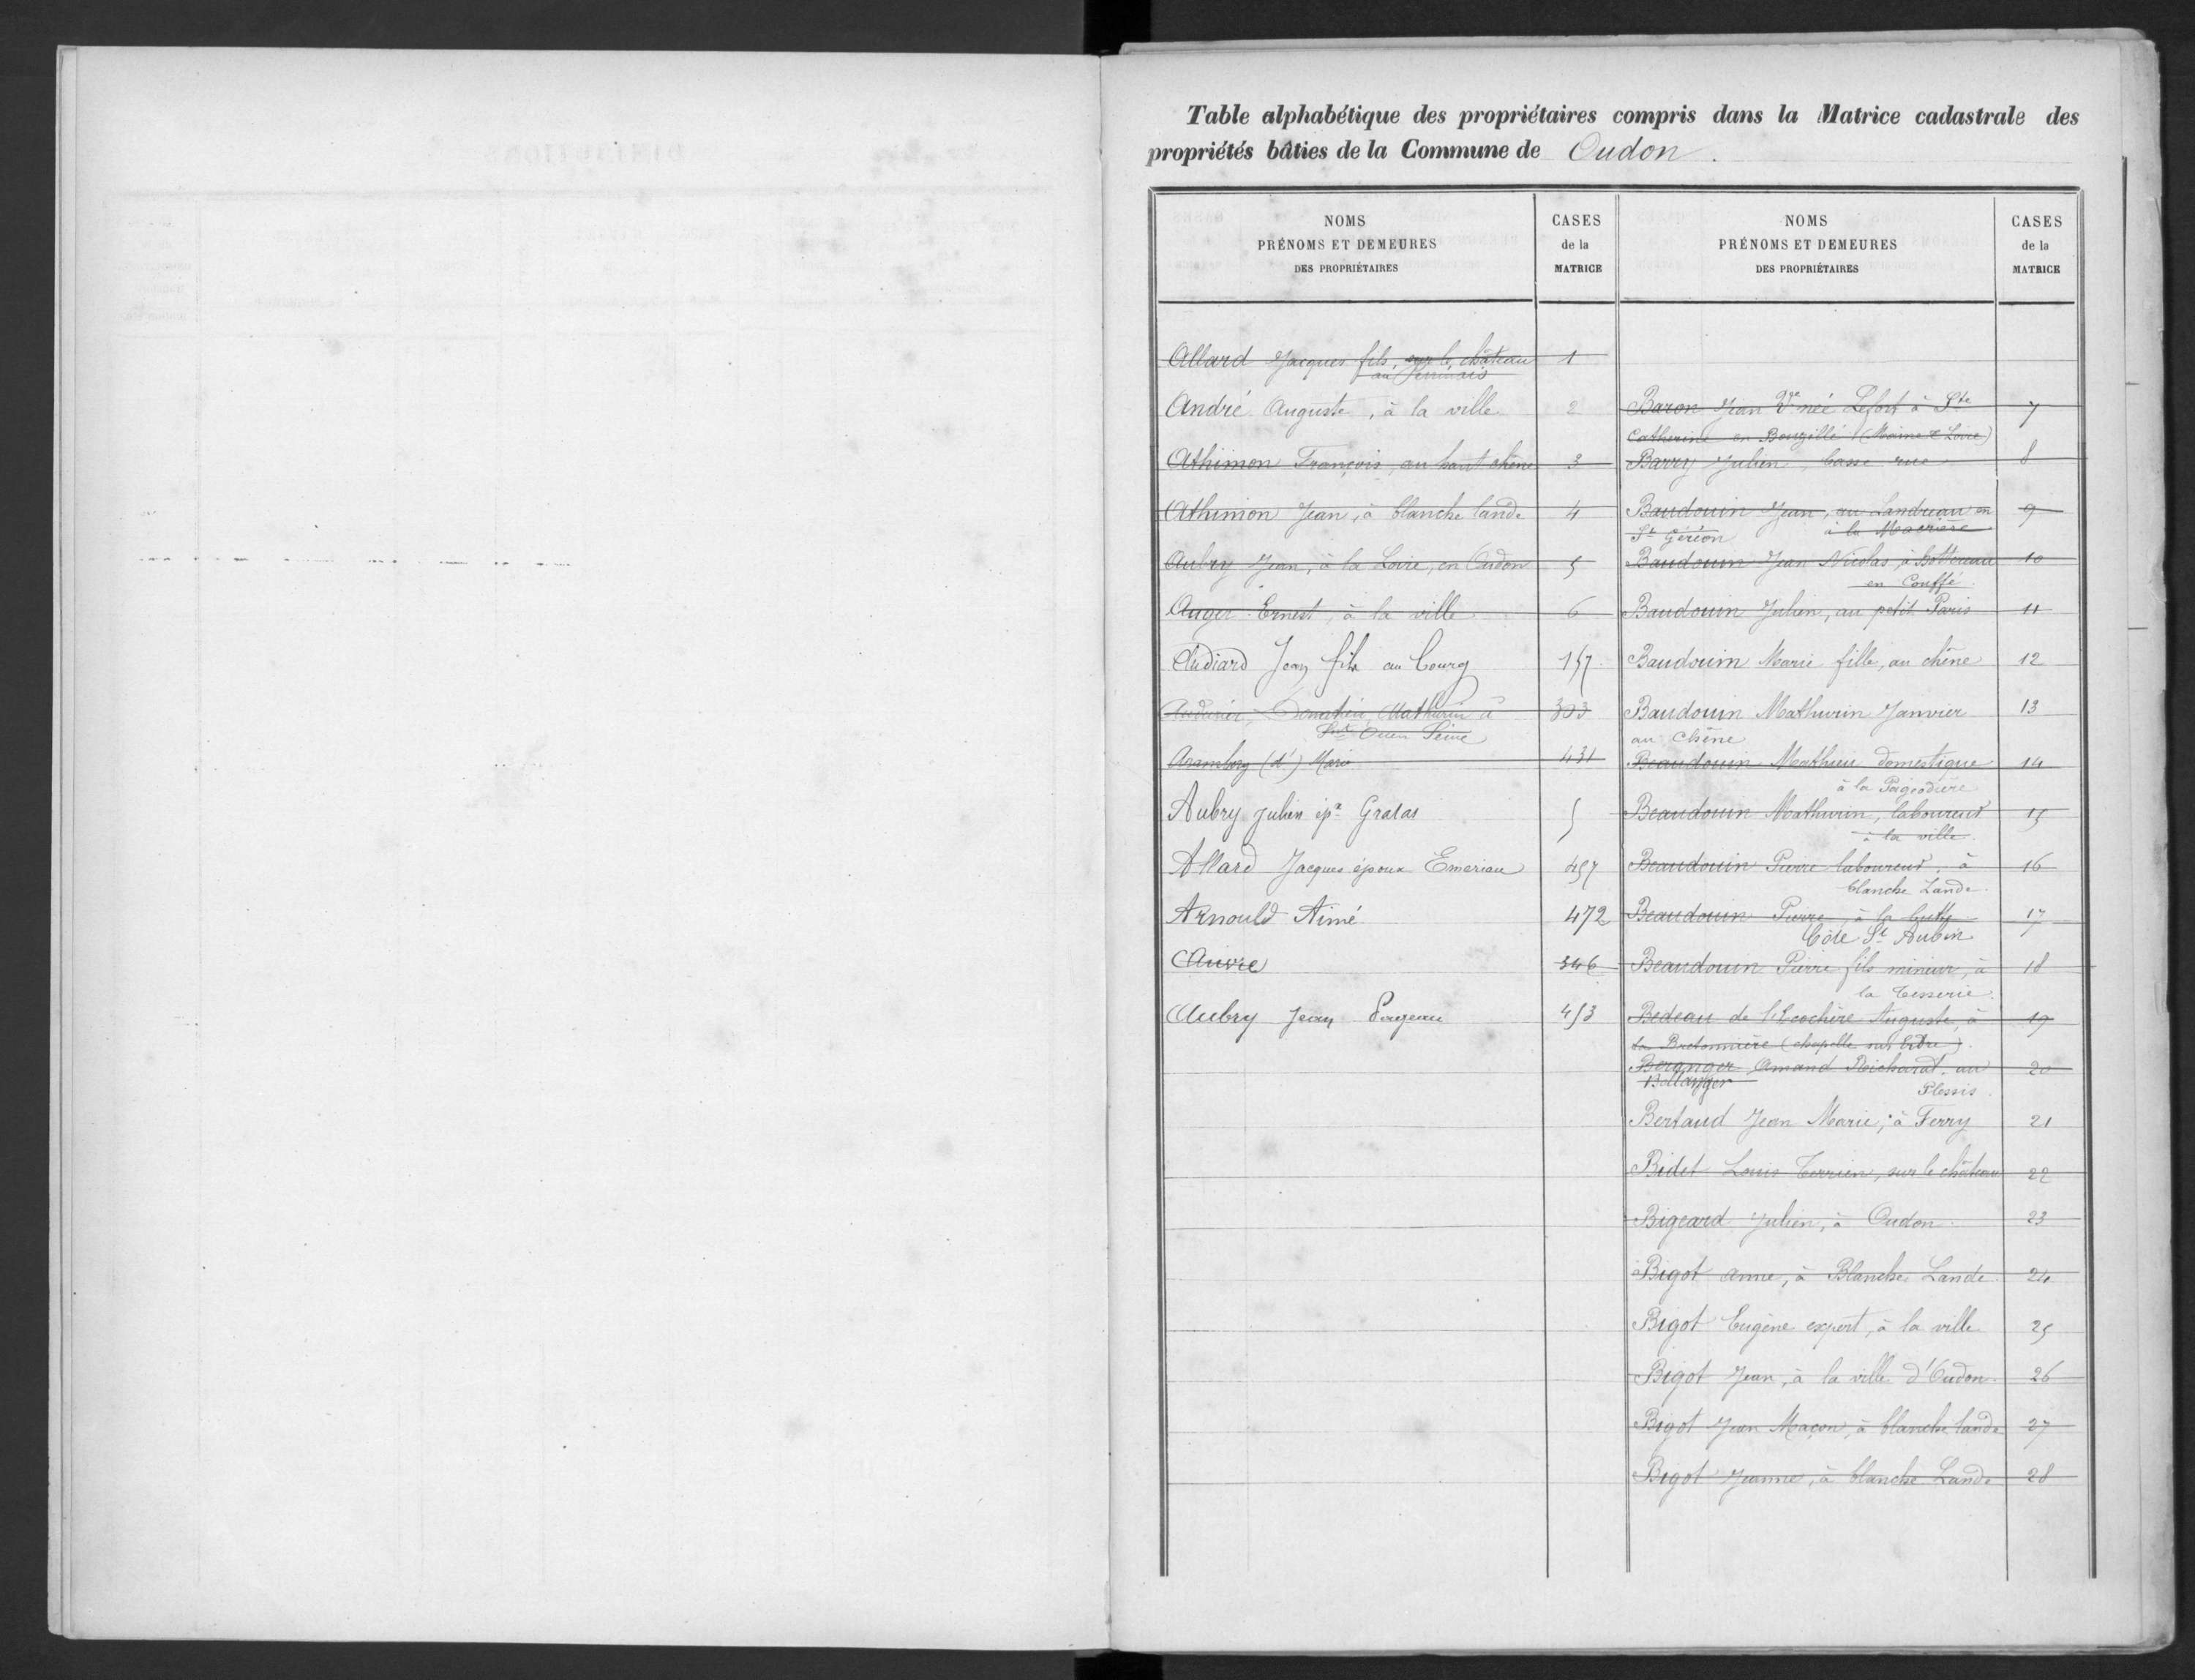 Table alphabétique des propriétaires compris dans la Matrice cadastrale des
propriétés bâties de la Commune de Oudon.
NOMS
PRÉNOMS ET DEMEURES
DES PROPRIÉTAIRES
CASES
de la
MATRICE
Allard Jacques fils, sur le château 1
au
André Auguste, à la ville 2
Athimon François, au haut chêne 3
Athimon Jean, à blanche lande 4
Aubry Jean, à la Loire, en Oudon 5
Auger Ernest, à la ville 6
Audiard Jean fils au bourg 157
Donatien, Mathurin à 303
Ouen Seine
(d') Marie 431
Aubry Julien ép. Gratas 5
Allard Jacques époux Emeriau 457
Arnould Aimé 472
346
Aubry Jean Pageau 453
NOMS
PRÉNOMS ET DEMEURES
DES PROPRIÉTAIRES
CASES
de la
MATRICE
Baron Jean Vve née Lefort à Ste 7
Catherine en Bouzillé (Maine & Loire)
Barry Julien, basse rue 8
Baudouin Jean, au Landreau en 9
St Géréon à la
Baudouin Jean Nicolas, à Bottereau 10
en Couffé
Baudouin Julien, au petit Paris 11
Baudouin Marie fille, au chêne 12
Baudouin Mathurin Janvier 13
au chêne
Beaudouin Mathieu domestique 14
à la
Beaudouin Mathurin, laboureur 15
à la ville
Beaudouin Pierre laboureur, à 16
blanche Lande.
Beaudouin Pierre, à la 17
Côte St Aubin
Beaudouin Pierre fils mineur, à 18
la
Bedeau de l'Ecochère Auguste, à 19
la Bretonnière (chapelle sur Erdre)
Beranger Amand Richard, au 20
Bellanger Plessis.
Bertaud Jean Marie, à Ferry 21
Bidet Louis Terrien, sur le château 22
Bigeard Julien, à Oudon 23
Bigot Anne, à Blanche Lande 24
Bigot Eugène expert, à la ville 25
Bigot Jean, à la ville d'Oudon 26
Bigot Jean Maçon, à blanche lande 27
Bigot Jeanne, à blanche Lande 28